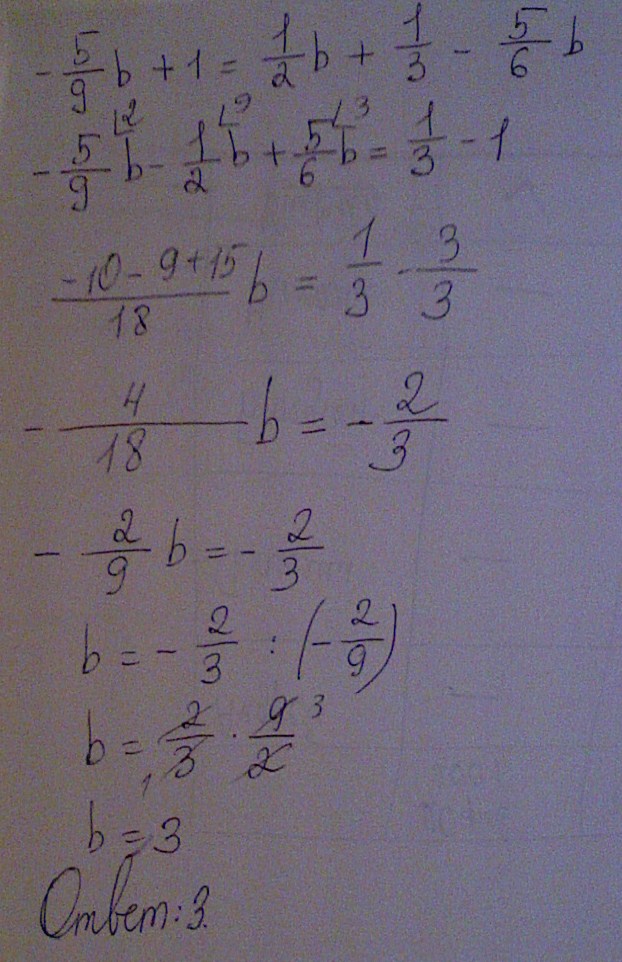 -5/9 b + 1 = 1/2 b + 1/3 - 5/6 b
-5/9 b ⌊2 - 1/2 b ⌊9 + 5/6 b ⌊3 = 1/3 - 1
(-10 - 9 + 15)/18 b = 1/3 - 3/3
- 4/18 b = - 2/3
- 2/9 b = - 2/3
b = - 2/3 : (- 2/9)
b = 2/3 1 · 9/2 3
b = 3
Ответ: 3.